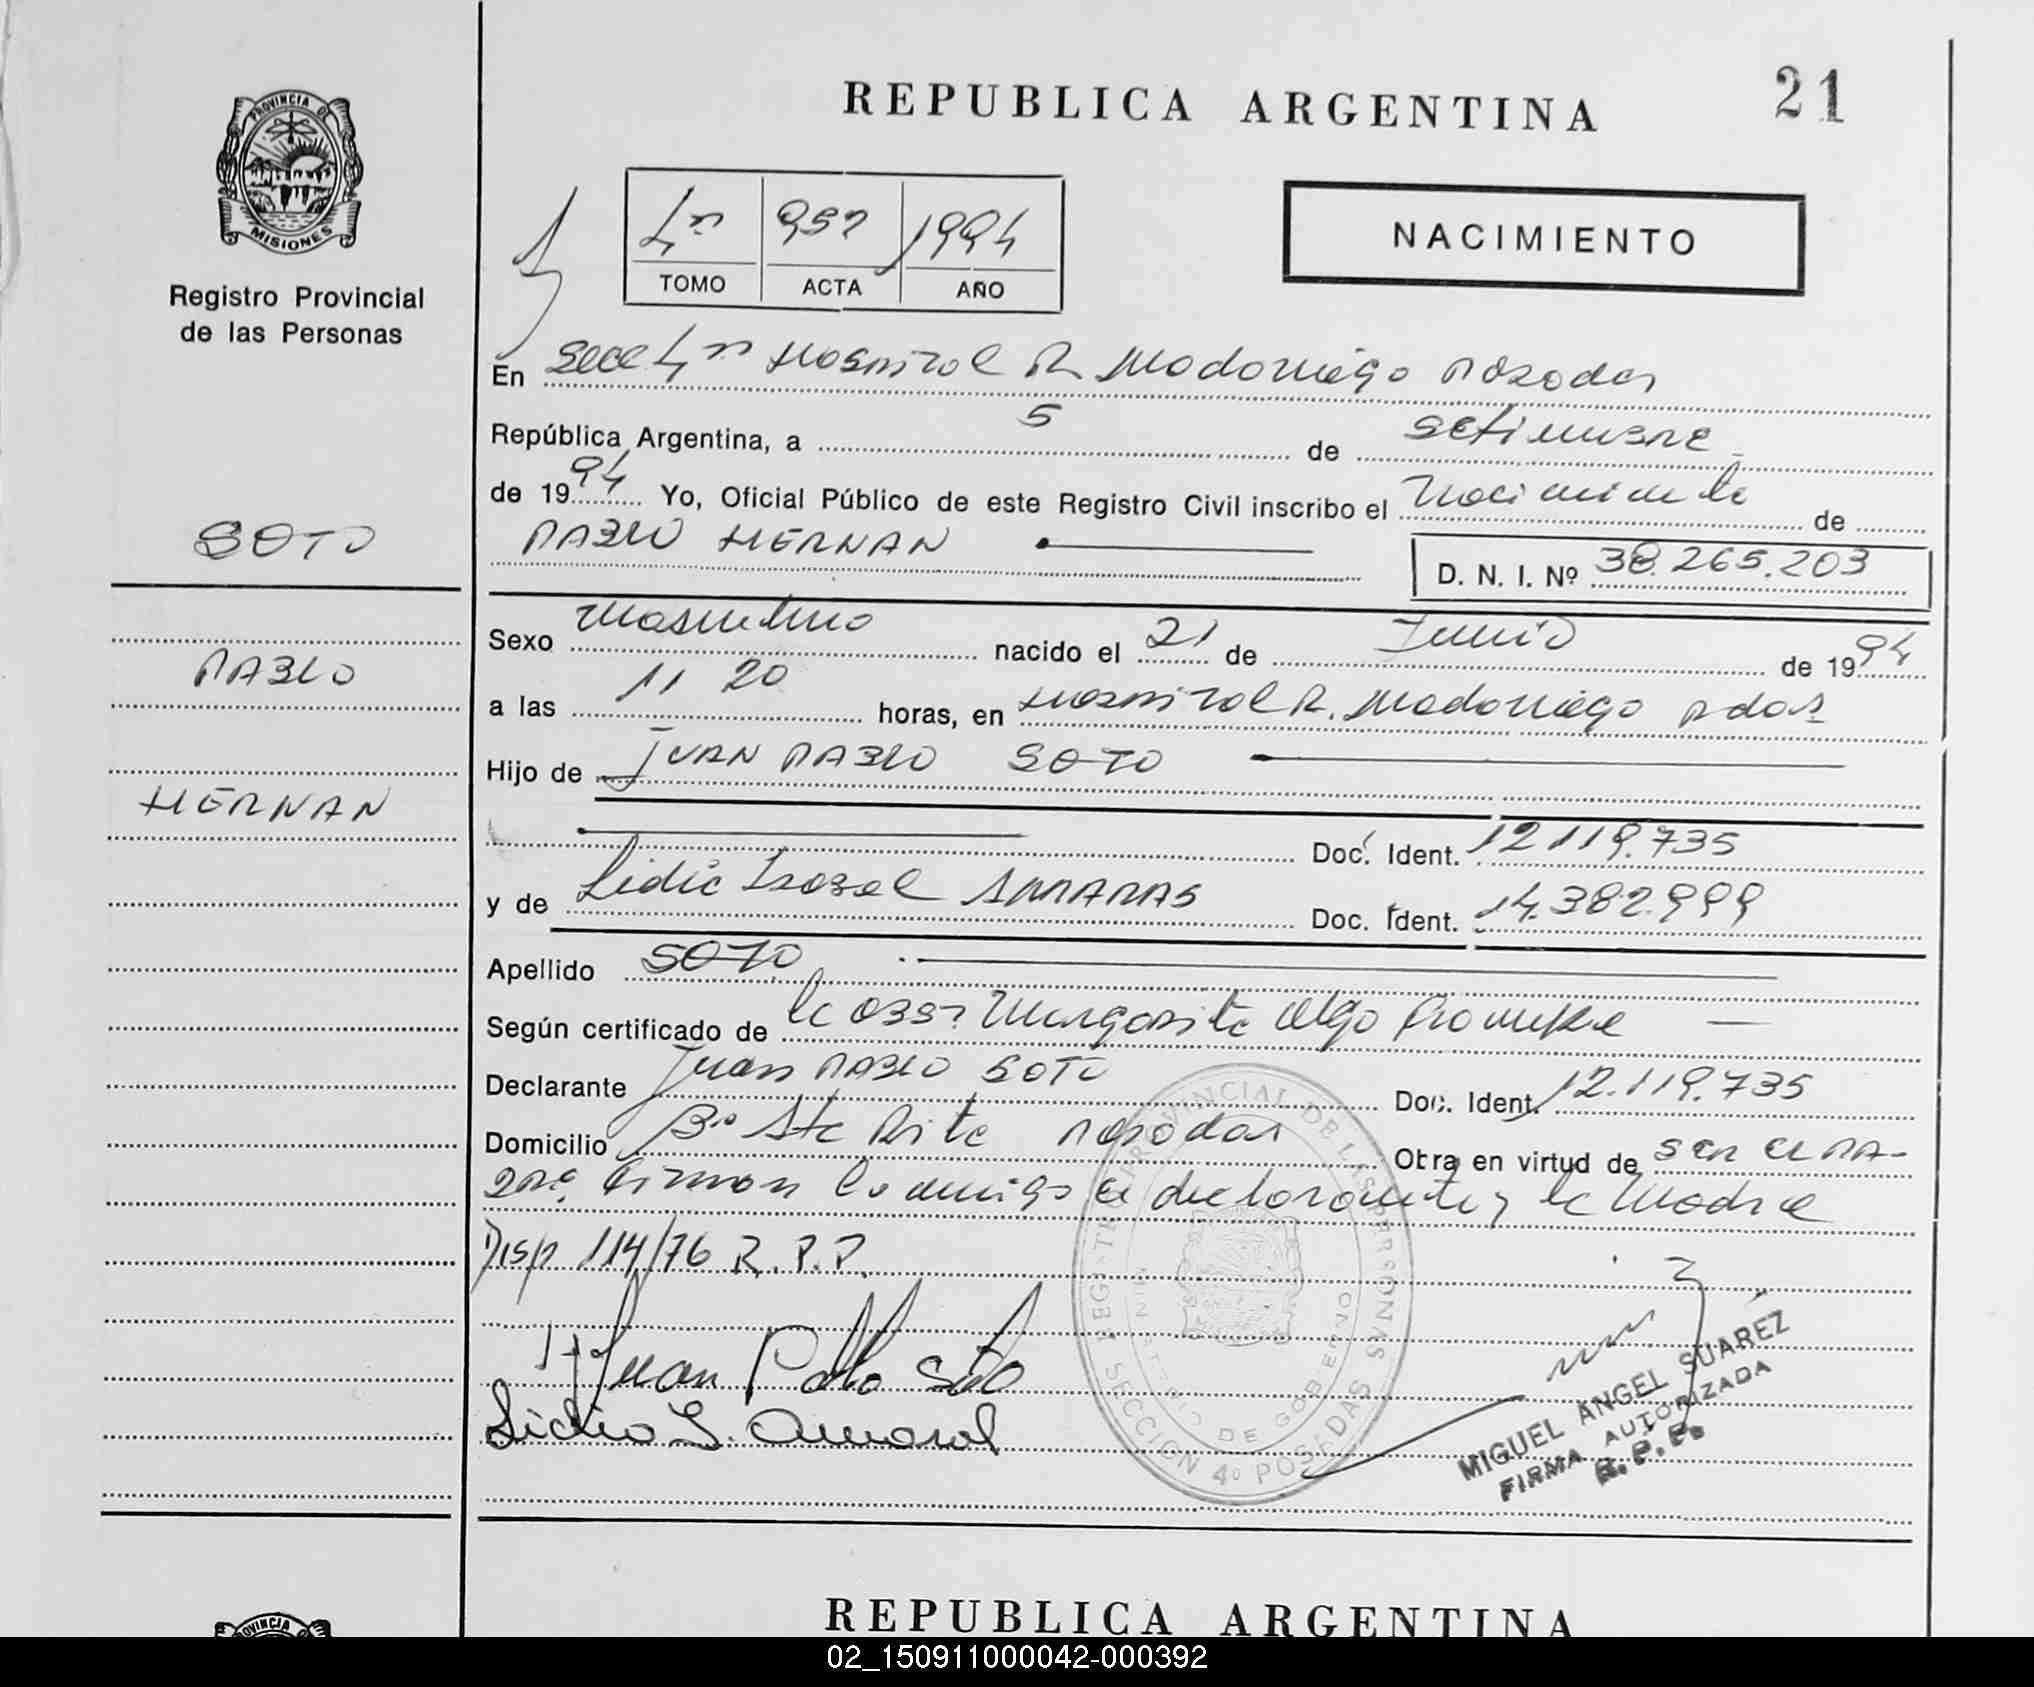 REPUBLICA ARGENTINA 21
PROVINCIA DE
MISIONES
Registro Provincial
de las Personas
4ta 1994
TOMO ACTA AÑO
NACIMIENTO
En Secc 4ta Hospital R. Madariaga Posadas
República Argentina, a 5 de Setiembre
de 1994 Yo, Oficial Público de este Registro Civil inscribo el Nacimiento de
PABLO HERNAN
D. N. I. Nº 38.265.203
SOTO
PABLO
HERNAN
Sexo Masculino nacido el 21 de Junio de 1994
a las 11 20 horas, en Hospital R. Madariaga Pdas
Hijo de JUAN PABLO SOTO
Doc. Ident. 12.119.735
y de Lidia Isabel Doc. Ident. 14.382.999
Apellido SOTO
Según certificado de la Obst Margarita Olga
Declarante Juan PABLO SOTO Doc. Ident. 12.119.735
Domicilio Bº Sta Rita Posadas Otra en virtud de ser el PA-
DRE. Firman conmigo el declarante y la Madre
Disp 114/76 R.P.P.
Juan Pablo Soto
Lidia I. Amaral
REGISTRO PROVINCIAL DE LAS PERSONAS
SECCION 4º POSADAS
MINISTERIO DE GOBIERNO
MIGUEL ANGEL SUAREZ
FIRMA AUTORIZADA
R.P.P.
REPUBLICA ARGENTINA
PROVINCIA
02_150911000042-000392